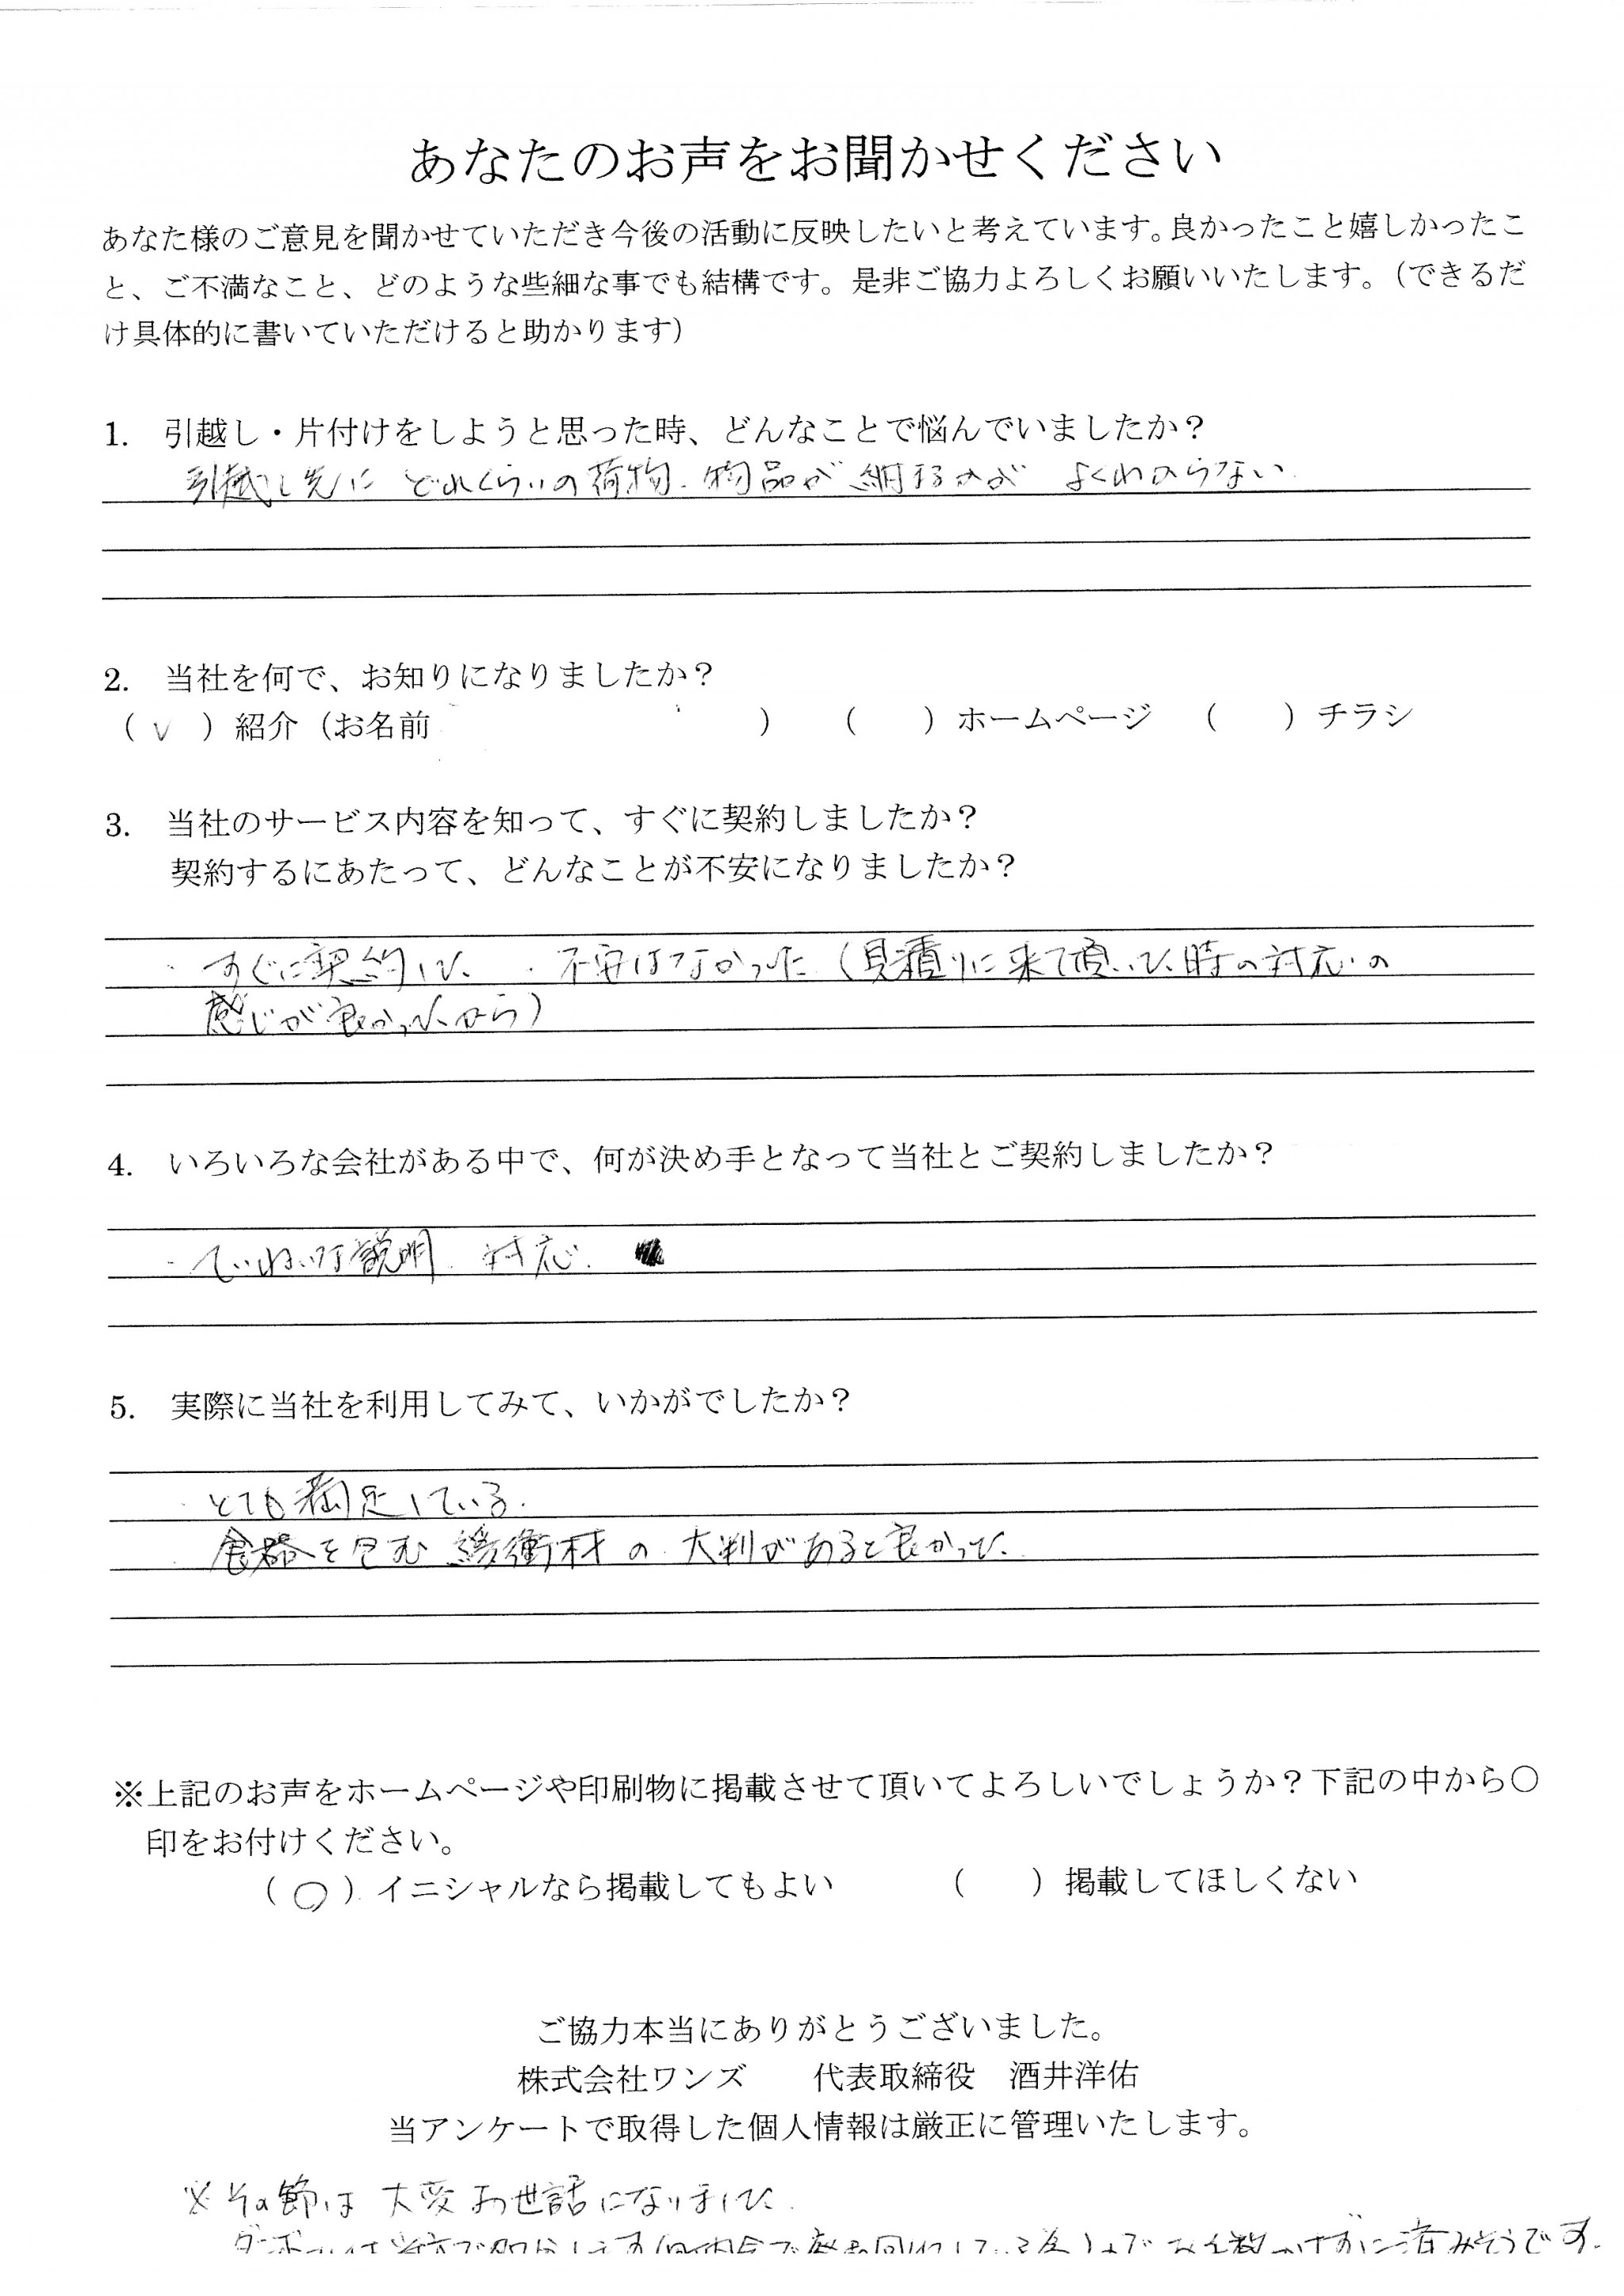 あなたのお声をお聞かせください
あなた様のご意見を聞かせていただき今後の活動に反映したいと考えています。良かったこと嬉しかったこ
と、ご不満なこと、どのような些細な事でも結構です。是非ご協力よろしくお願いいたします。（できるだ
け具体的に書いていただけると助かります）
1. 引越し・片付けをしようと思った時、どんなことで悩んでいましたか？
引越し先に どれくらいの荷物、物品が納まるかが よくわからない
2. 当社を何で、お知りになりましたか？
（ v ）紹介（お名前 ） （ ）ホームページ （ ）チラシ
3. 当社のサービス内容を知って、すぐに契約しましたか？
契約するにあたって、どんなことが不安になりましたか？
・すぐに契約した ・不安はなかった（見積りに来て頂いた時の対応の
感じが良かったから）
4. いろいろな会社がある中で、何が決め手となって当社とご契約しましたか？
・ていねいな説明、対応、
5. 実際に当社を利用してみて、いかがでしたか？
・とても満足している。
・食器を包む緩衝材の大判があると良かった
※上記のお声をホームページや印刷物に掲載させて頂いてよろしいでしょうか？下記の中から〇
印をお付けください。
（ 〇 ）イニシャルなら掲載してもよい （ ）掲載してほしくない
ご協力本当にありがとうございました。
株式会社ワンズ 代表取締役 酒井洋佑
当アンケートで取得した個人情報は厳正に管理いたします。
※その節は 大変お世話になりました。
お手数かけずに済みそうです。